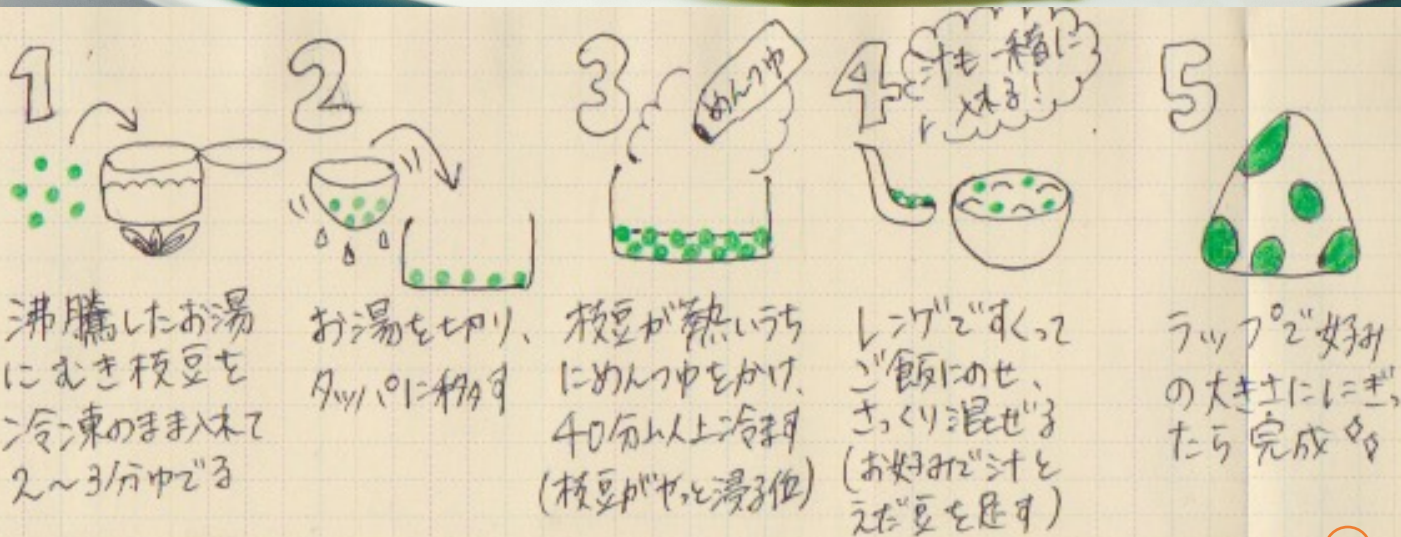 1
沸騰したお湯
にむき枝豆を
冷凍のまま入れて
2〜3分ゆでる
2
お湯を切り、
タッパに移す
3
めんつゆ
枝豆が熱いうち
にめんつゆをかけ、
40分以上冷ます
(枝豆がやっと浸る位)
4
汁も一緒に
入れる!
レンゲですくって
ご飯にのせ、
さっくり混ぜる
(お好みで汁と
えだ豆を足す)
5
ラップで好み
の大きさににぎっ
たら完成